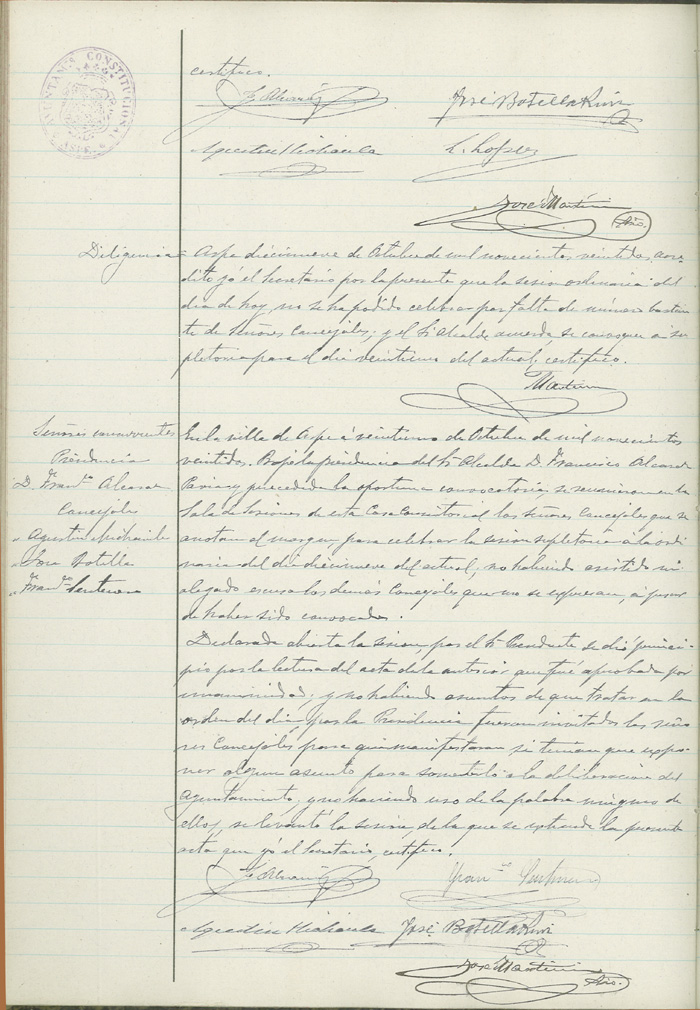 AYUNTAMIENTO CONSTITUCIONAL
ASPE
certifico.
F. Alcaraz
José Botella
Agustin Mirambell
L. Lopez
José Martin
Srio.
Diligencia = Aspe diecinueve de Octubre de mil novecientos veintidos, acre-
dito yó el Secretario por la presente que la sesion ordinaria del
dia de hoy, no se ha podido celebrar por falta de número bastan-
te de Señores Concejales; y el Sr Alcalde acuerda se convoque a su-
pletoria para el dia veintiuno del actual; certifico.
Martin
Señores concurrentes
Presidencia
D. Franco Alcaraz
Concejales
" Agustin
" Jose Botella
" Franco
En la villa de Aspe á veintiuno de Octubre de mil novecientos
veintidos. Bajo la presidencia del Sr Alcalde D. Francisco Alcaraz
y precedida la oportuna convocatoria, se reunieron en la
Sala de Sesiones de esta Casa Consistorial los señores Concejales que se
anotan al margen, para celebrar la sesion supletoria á la ordi-
naria del dia diecinueve del actual; no habiendo asistido ni
alegado escusa los demás Concejales que no se espresan, á pesar
de haber sido convocados.
Declarada abierta la sesion, por el Sr Presidente se dió princi-
pio por la lectura del acta de la anterior que fué aprobada por
unanimidad; y no habiendo asuntos de que tratar en la
orden del dia, por la Presidencia fueron invitados los seño-
res Concejales para que manifestaran si tenian que expo-
ner algun asunto para someterlo á la deliberacion del
Ayuntamiento, y no haciendo uso de la palabra ninguno de
ellos, se levantó la sesion, de la que se extiende la presente
acta que yó el Secretario, certifico.
F. Alcaraz
Franco
Agustin
José Botella
José Martin
Srio.